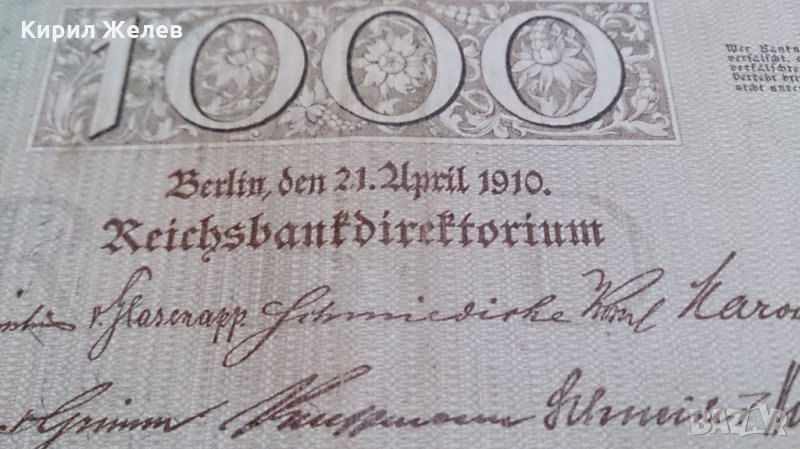 Кирил Желев
1000
Wer Bankn
verfälscht, o
verfälschte
Verkehr bri
nicht unter
Berlin, den 21. April 1910.
Reichsbankdirektorium
v. Glasenapp. Schmiedicke Korn Maron
v. Grimm Kauffmann Schneider
BAZAR